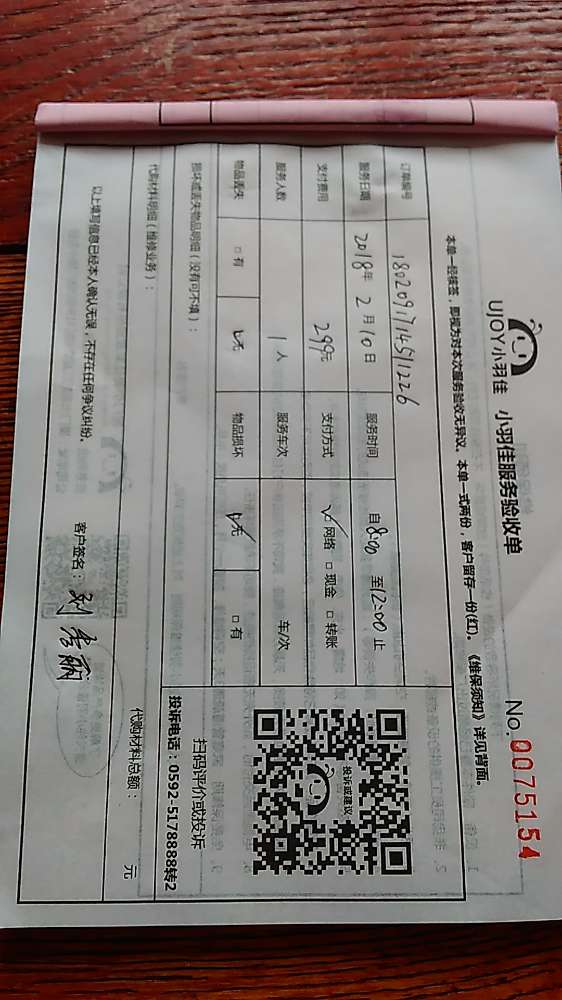 UJOY小羽佳 小羽佳服务验收单
No. 0075154
本单一经接签，即视为对本次服务验收无异议。本单一式两份，客户留存一份(红)。《维保须知》详见背面。
订单编号 1802091714511226
服务日期 2018年 2月10日 服务时间 自 8:00 至12:00止
支付费用 299元 支付方式 ☑网络 □现金 □转账
服务人数 1 人 服务车次 车/次
物品丢失 □有 ☑无 物品损坏 ☑无 □有
损坏或丢失物品明细（没有可不填）：
投诉或建议
扫码评价或投诉
投诉电话：0592-5178888转2
代购材料明细（维修业务）：
代购材料总额： 元
以上填写信息已经本人确认无误，不存在任何争议纠纷。
客户签名：刘秀丽